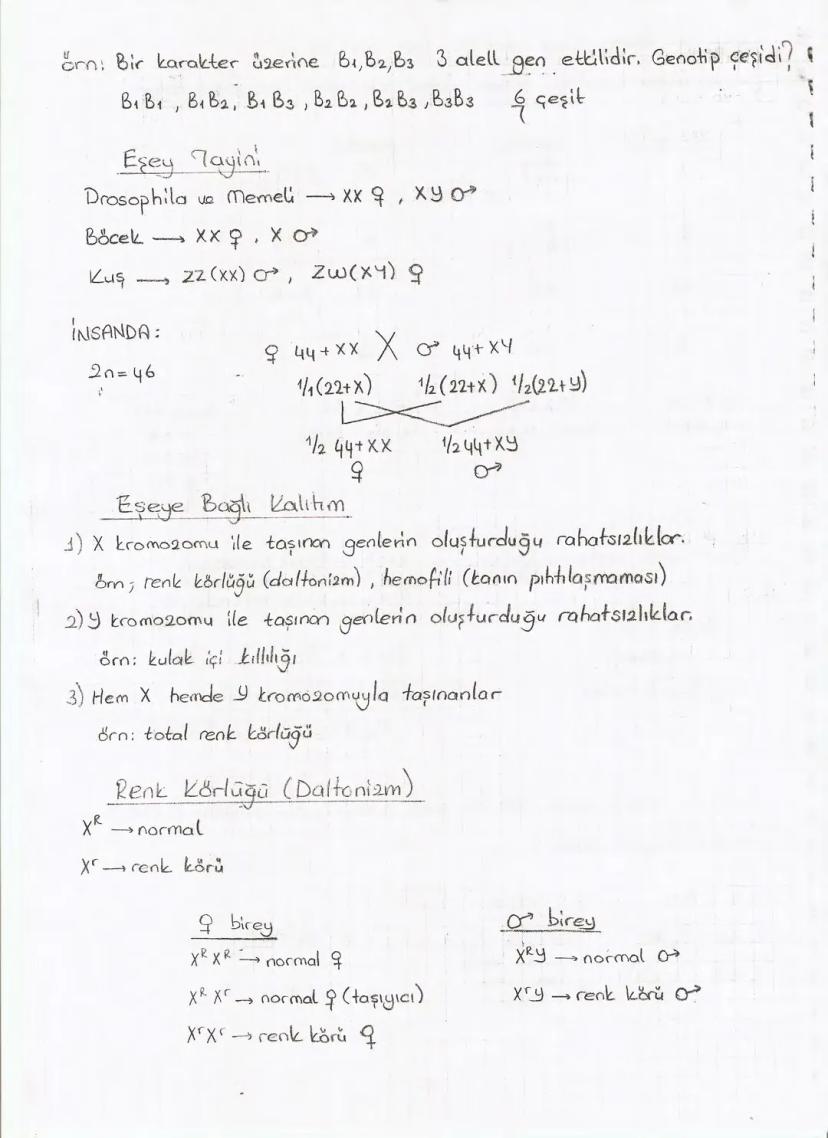 örn: Bir karakter üzerine B₁,B₂,B₃ 3 alell gen etkilidir. Genotip çeşidi?
B₁B₁ , B₁B₂, B₁B₃ , B₂B₂ , B₂B₃ , B₃B₃ 6 çeşit
Eşey Tayini
Drosophila ve Memeli → XX ♀ , XY ♂
Böcek → XX ♀ , X ♂
Kuş → ZZ(XX) ♂ , ZW(XY) ♀
İNSANDA:
♀ 44+XX X ♂ 44+XY
2n=46
1/1(22+X) 1/2(22+X) 1/2(22+Y)
1/2 44+XX 1/2 44+XY
♀ ♂
Eşeye Bağlı Kalıtım
1) X kromozomu ile taşınan genlerin oluşturduğu rahatsızlıklar.
örn; renk körlüğü (daltonizm) , hemofili (kanın pıhtılaşmaması)
2) Y kromozomu ile taşınan genlerin oluşturduğu rahatsızlıklar.
örn: kulak içi kıllılığı
3) Hem X hemde Y kromozomuyla taşınanlar
örn: total renk körlüğü
Renk Körlüğü (Daltonizm)
Xᴿ → normal
Xʳ → renk körü
♀ birey ♂ birey
XᴿXᴿ → normal ♀ XᴿY → normal ♂
XᴿXʳ → normal ♀ (taşıyıcı) XʳY → renk körü ♂
XʳXʳ → renk körü ♀